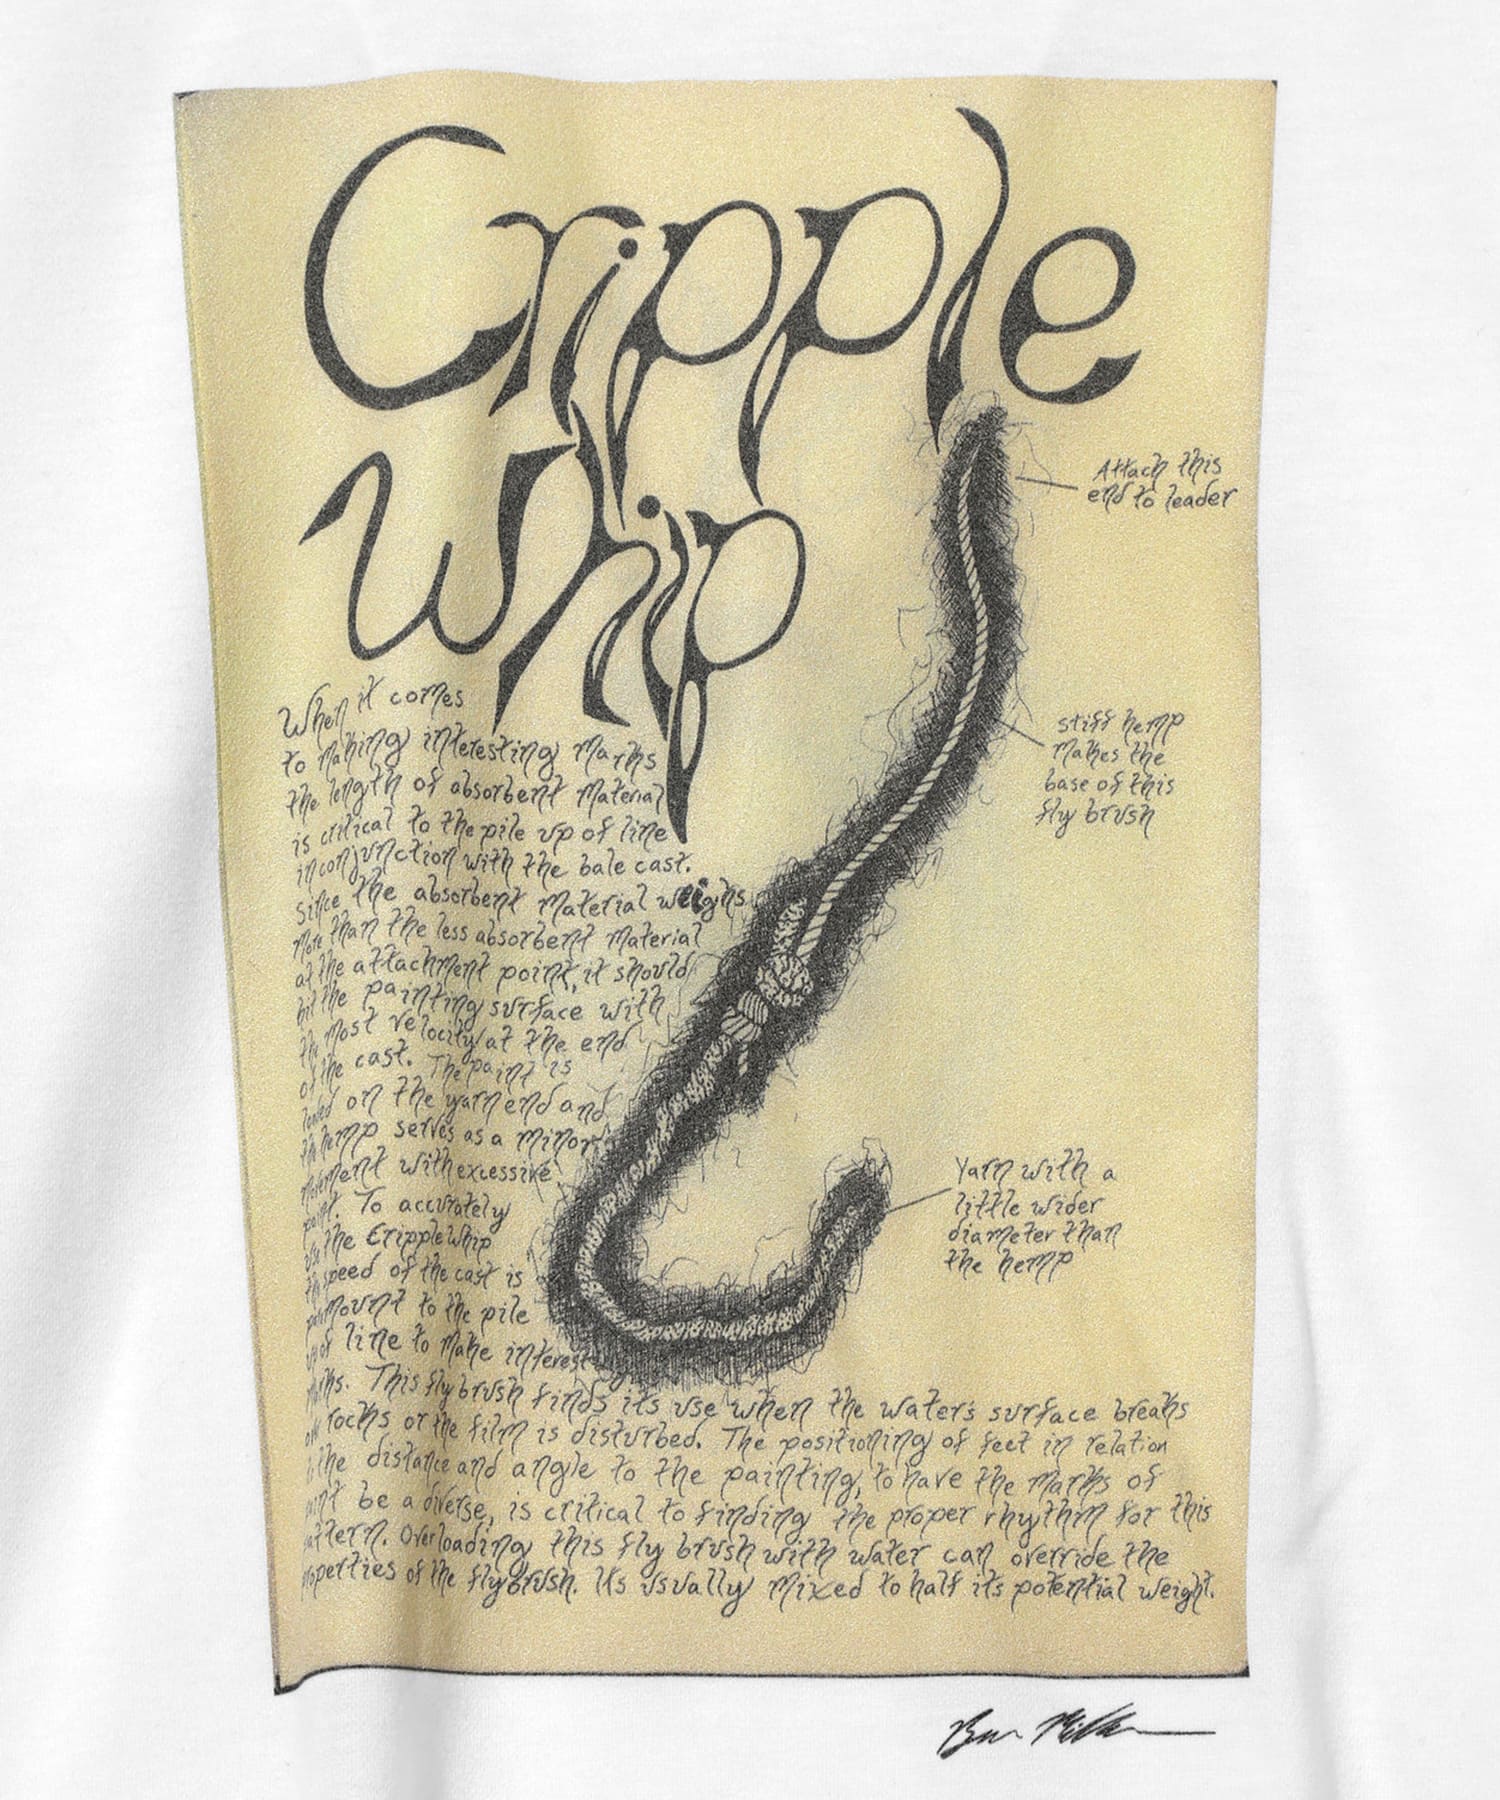 Cripple
Whip
Attach this
end to leader
stiff hemp
makes the
base of this
fly brush
Yarn with a
little wider
diameter than
the hemp
When it comes
to making interesting marks
the length of absorbent material
is critical to the pile up of line
in conjunction with the bale cast.
since the absorbent material weighs
more than the less absorbent material
at the attachment point, it should
hit the painting surface with
the most velocity at the end
of the cast. The paint is
loaded on the yarn end and
the hemp serves as a minor
movement with excessive
paint. To accurately
use the Cripple Whip
the speed of the cast is
paramount to the pile
up of line to make interest
marks. This fly brush finds its use when the water's surface breaks
rocks or the film is disturbed. The positioning of feet in relation
the distance and angle to the painting, to have the marks of
paint be a diverse, is critical to finding the proper rhythm for this
pattern. Overloading this fly brush with water can override the
properties of the fly brush. Its usually mixed to half its potential weight.